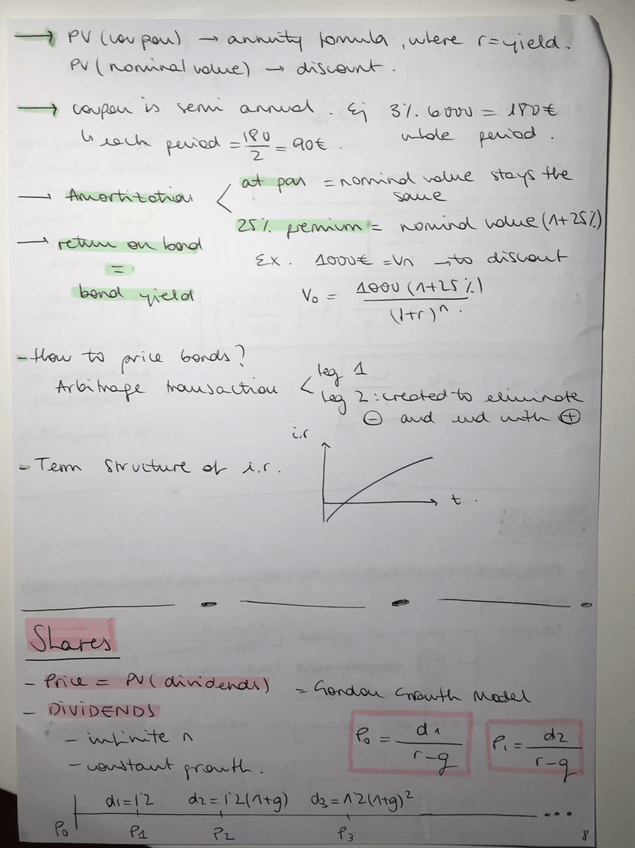 → PV (coupon) → annuity formula, where r=yield.
PV (nominal value) → discount.
→ coupon is semi annual. Ej 3% 6000 = 180€
↳ each period = 180/2 = 90€. whole period.
→ Amortization < at par = nominal value stays the
same
25% premium = nominal value (1+25%)
→ return on bond
=
bond yield
Ex. 1000€ = Vn → to discount
V0 = 1000 (1+25%) / (1+r)^n.
- How to price bonds?
Arbitrage transaction < leg 1
leg 2: created to eliminate
⊖ and end with ⊕
- Term structure of i.r.
i.r
t.
Shares
- Price = PV (dividends) = Gordon Growth Model
- DIVIDENDS
- infinite n
- constant growth.
P0 = d1 / r-g
P1 = d2 / r-g
d1=12 d2=12(1+g) d3=12(1+g)²
P0 P1 P2 P3 ...
8